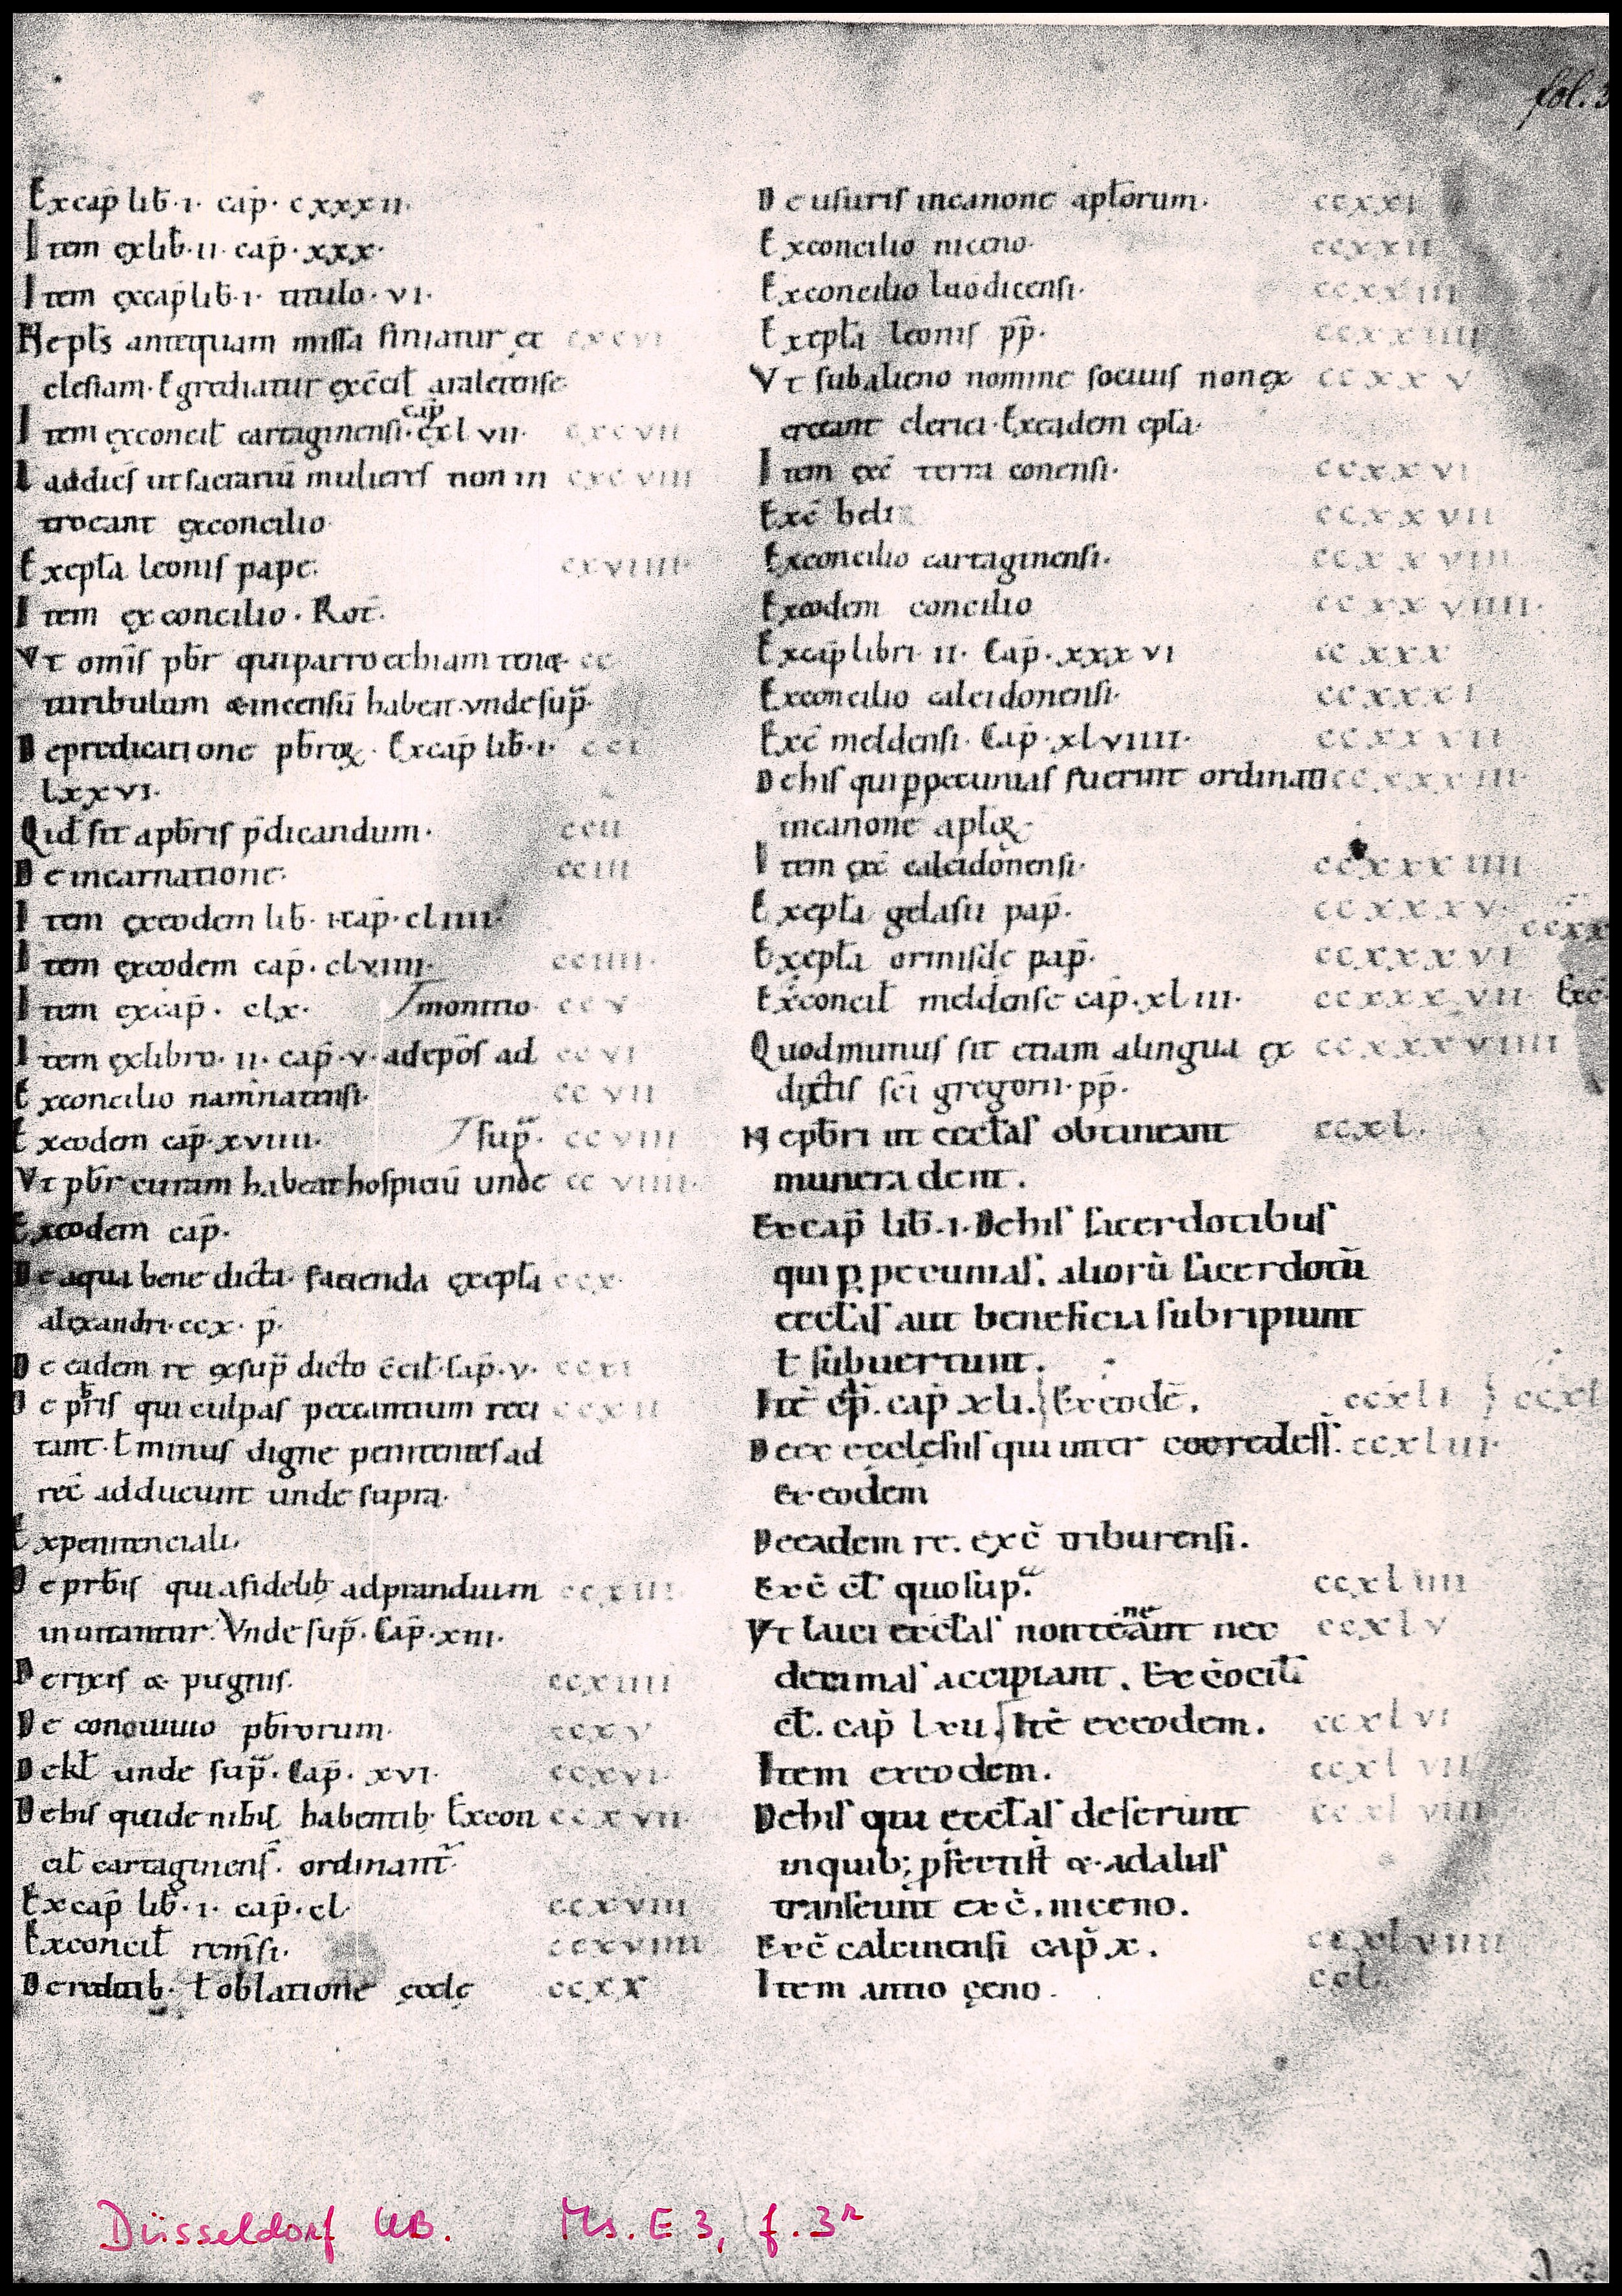 fol. 3
Excap̄ lib̄·i· cap̄· cxxxii·
Item ęxlib̄·ii· cap̄·xxx·
Item ęxcap̄ lib̄·i· titulo·vi·
Nepl̄s antequam missa finiatur ęc cxcvi
clesiam· Egrediatur ęxc̄cil̄ aralatense
cap̄
Item ęxconcil̄ cartaginensi·ęxl vii· cxcvii
addics ut sacrariū mulieres non in cxcviii
trocant ęxconcilio
Exepl̄a leonis pape· cxviiii·
Item ęx concilio· Rot̄·
Vt omīs pb̄r quiparrocchiam tenꝫ· cc
turibulum ⁊incensū habeat·vnde sup̄·
Depredicatione pb̄roꝝ· Excap̄ lib̄·i· cci
lxxvi·
Qid̄ sit apb̄ris p̄dicandum· ccii
De incarnatione· cciii
Item ęxeodem lib̄· i·cap̄·cliiii·
Item ęxeodem cap̄·clviiii· cciiii·
Item ęxcap̄· clx· /monitio· ccv
Item ęxlibro·ii·cap̄·v·adep̄os ad ccvi
Exconcilio namnatensi· ccvii
Exeodem cap̄·xviiii· /sup̄· ccviii
Vt pb̄r curam habeat hospiciū unde ccviiii·
Exeodem cap̄·
De aqua bene dicta· facienda ęxepl̄a ccx·
alęxandri·ccx· p̄·
De eadem re ęxsup̄ dicto c̄cil̄·cap̄·v· ccxi
De pb̄ris qui culpas peccantium reci ccxii
tant·l̄ minus digne penitentes ad
rec̄ adducunt unde supra·
Expenitenciali·
De prb̄is qui afidelib̄ adprandium ccxiii
inuitantur· Vnde sup̄·Cap̄·xiii·
Derixis ⁊ pugnis· ccxiiii
De conuiuio pb̄rorum· ccxv
Dekl̄ unde sup̄·Cap̄·xvi· ccxvi·
Dehis quide nib̄il habentib· Excon ccxvii·
cil̄ cartaginens̄· ordinant̄·
Excap̄ lib̄·i· cap̄·cl ccxviii
Exconcil̄ rem̄si· ccxviiii
Deredditib· l̄ oblatione ęcclę ccxx
De usuris incanone apl̄orum· ccxxi
Exconcilio niceno· ccxxii
Exconcilio laodicensi· ccxxiii
Exepl̄a leonis pp̄· ccxxiiii
Vt subalieno nomine socius nonęx ccxxv
erceant clerici·Exeadem epl̄a·
Item ęxc̄ terra conensi· ccxxvi
Exc̄ beli ccxxvii
Exconcilio cartaginensi· ccxxviii
Exeodem concilio ccxxviiii·
Excap̄ libri·ii·Cap̄·xxxvi ccxxx
Exconcilio calcidonensi· ccxxxi
Exc̄ meldensi·Cap̄·xlviiii· ccxxvii
Dehis quiꝑpecunias fuerint ordinati ccxxxiii·
incanone aplōꝝ·
Item ęxc̄ calcidonensi· ccxxxiiii
Exepl̄a gelasii pap̄· ccxxxv· ccxx
Exepl̄a ormisde pap̄· ccxxxvi
Exconcil̄ meldense cap̄·xliii· ccxxxvii Exc̄
Quodmunus sit etiam alingua ęx ccxxxviiii
dictis sc̄i gregorii·pp̄·
Nepb̄ri ut eccl̄as obtineant ccxl·
munera dent·
Excap̄ lib̄·i·Dehis sacerdotibus
qui ꝑ pecunias· aliorū sacerdotū
eccl̄as aut beneficia subripiunt
l̄ subuertunt·
Itē ep̄·cap̄ xli·} Exeodē· ccxli } ccxl
Deex ecclesiis qui inter coeredess̄· ccxliii·
Exeodem
Deeadem re·exc̄ triburensi·
Exc̄ cl̄ quo sup̄· ccxliiii
ne
Vt laici eccl̄as nonteāant nec ccxlv
decimas accipiant· Ex c̄ocil̄i
cl̄·cap̄ lxii·/Itē exeodem· ccxlvi
Item exeodem· ccxlvii
Dehis qui eccl̄as deserunt ccxlviii
inquib; pfecti st̄ ⁊·adalias
transeunt exc̄·niceno·
Exc̄ calcinensi cap̄·x· ccxlviiii
Item antio çeno· ccl·
Düsseldorf UB. Ms. E 3, f. 3r